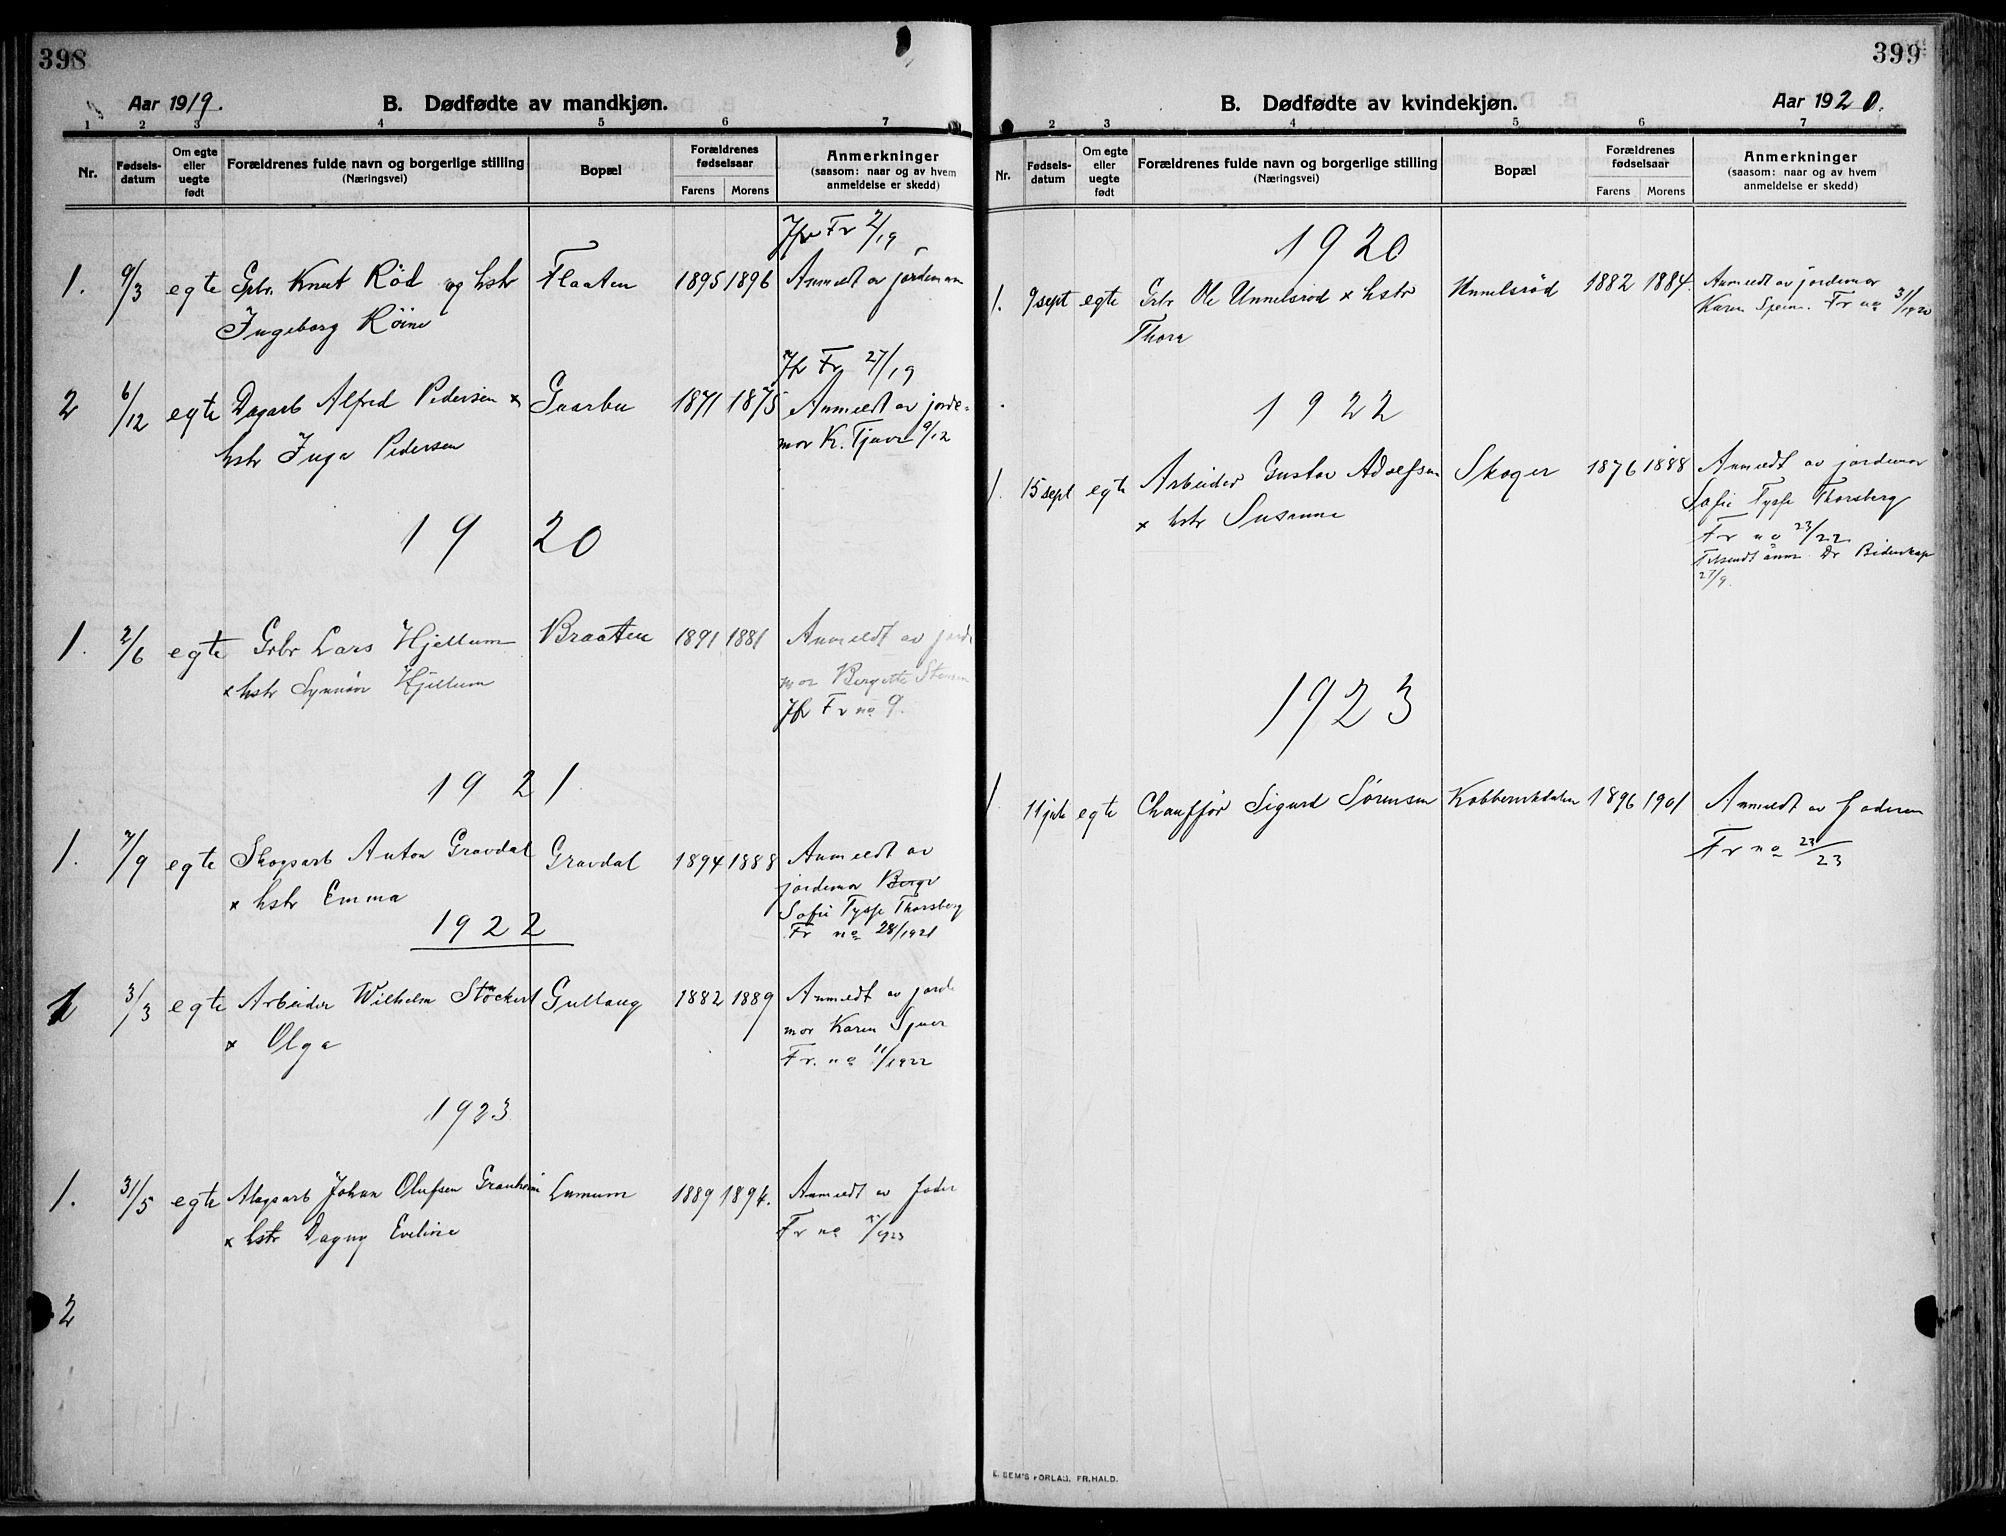 398
Aar 1919. B. Dødfødte av mandkjøn.
1 2 3 4 5 6 7
Nr. Fødsels-datum Om egte eller uegte født Forældrenes fulde navn og borgerlige stilling (Næringsvei) Bopæl Forældrenes fødselsaar Farens Morens Anmerkninger (saasom: naar og av hvem anmeldelse er skedd)
Jfr Fr 7/19
1. 9/3 egte Grbr. Knut Rød og hstr Flaaten 1895 1896 Anmeldt av jordemor
Ingeborg Røine
Jfr Fr 27/19
2 6/12 egte Dagarb Alfred Pedersen x Gaarbu 1871 1875 Anmeldt av jorde-
hstr Inga Pedersen mor K. Tjuer 9/12
1920
1. 2/6 egte Grbr Lars Hjellum Braaten 1891 1881 Anmeldt av jorde
x hstr Synnøv Hjellum mor Bergette Stensen
Jfr Fr no 9.
1921
1. 7/9 egte Skogsarb Anton Gravdal Gravdal 1894 1888 Anmeldt av
x hstr Emma jordemor Berge
Sofie Tysse Thorsberg
Fr no 28/1921
1922
1 3/3 egte Arbeider Wilhelm Stöckert Gullaug 1882 1889 Anmeldt av jorde
x Olga mor Karen Sjuer
Fr. no 11/1922
1923
1. 31/5 egte Johan Olufsen Granheim 1889 1894. Anmeldt av fader
x hstr Dagny Eveline Fr no /1923
2
399
B. Dødfødte av kvindekjøn. Aar 1920.
2 3 4 5 6 7
Nr. Fødsels-datum Om egte eller uegte født Forældrenes fulde navn og borgerlige stilling (Næringsvei) Bopæl Forældrenes fødselsaar Farens Morens Anmerkninger (saasom: naar og av hvem anmeldelse er skedd)
1920
1. 9 sept egte Grbr Ole Unnelsrød x hstr Unnelsrød 1882 1884. Anmeldt av jordemor
Thora Karen Fr no 31/1920
1922
1. 15 sept egte Arbeider Gustav Adolfsen Skoger 1876 1888 Anmeldt av jordemor
x hstr Susanne Sofie Tysse Thorsberg
Fr no 23/22
Tilsendt anm. Dr Bidenkap
27/9.
1923
1 11 juli egte Chauffør Sigurd Sørensen Kobbervikdalen 1896 1901 Anmeldt av faderen
Fr no 23/23
E. SEM'S FORLAG, FR.HALD.